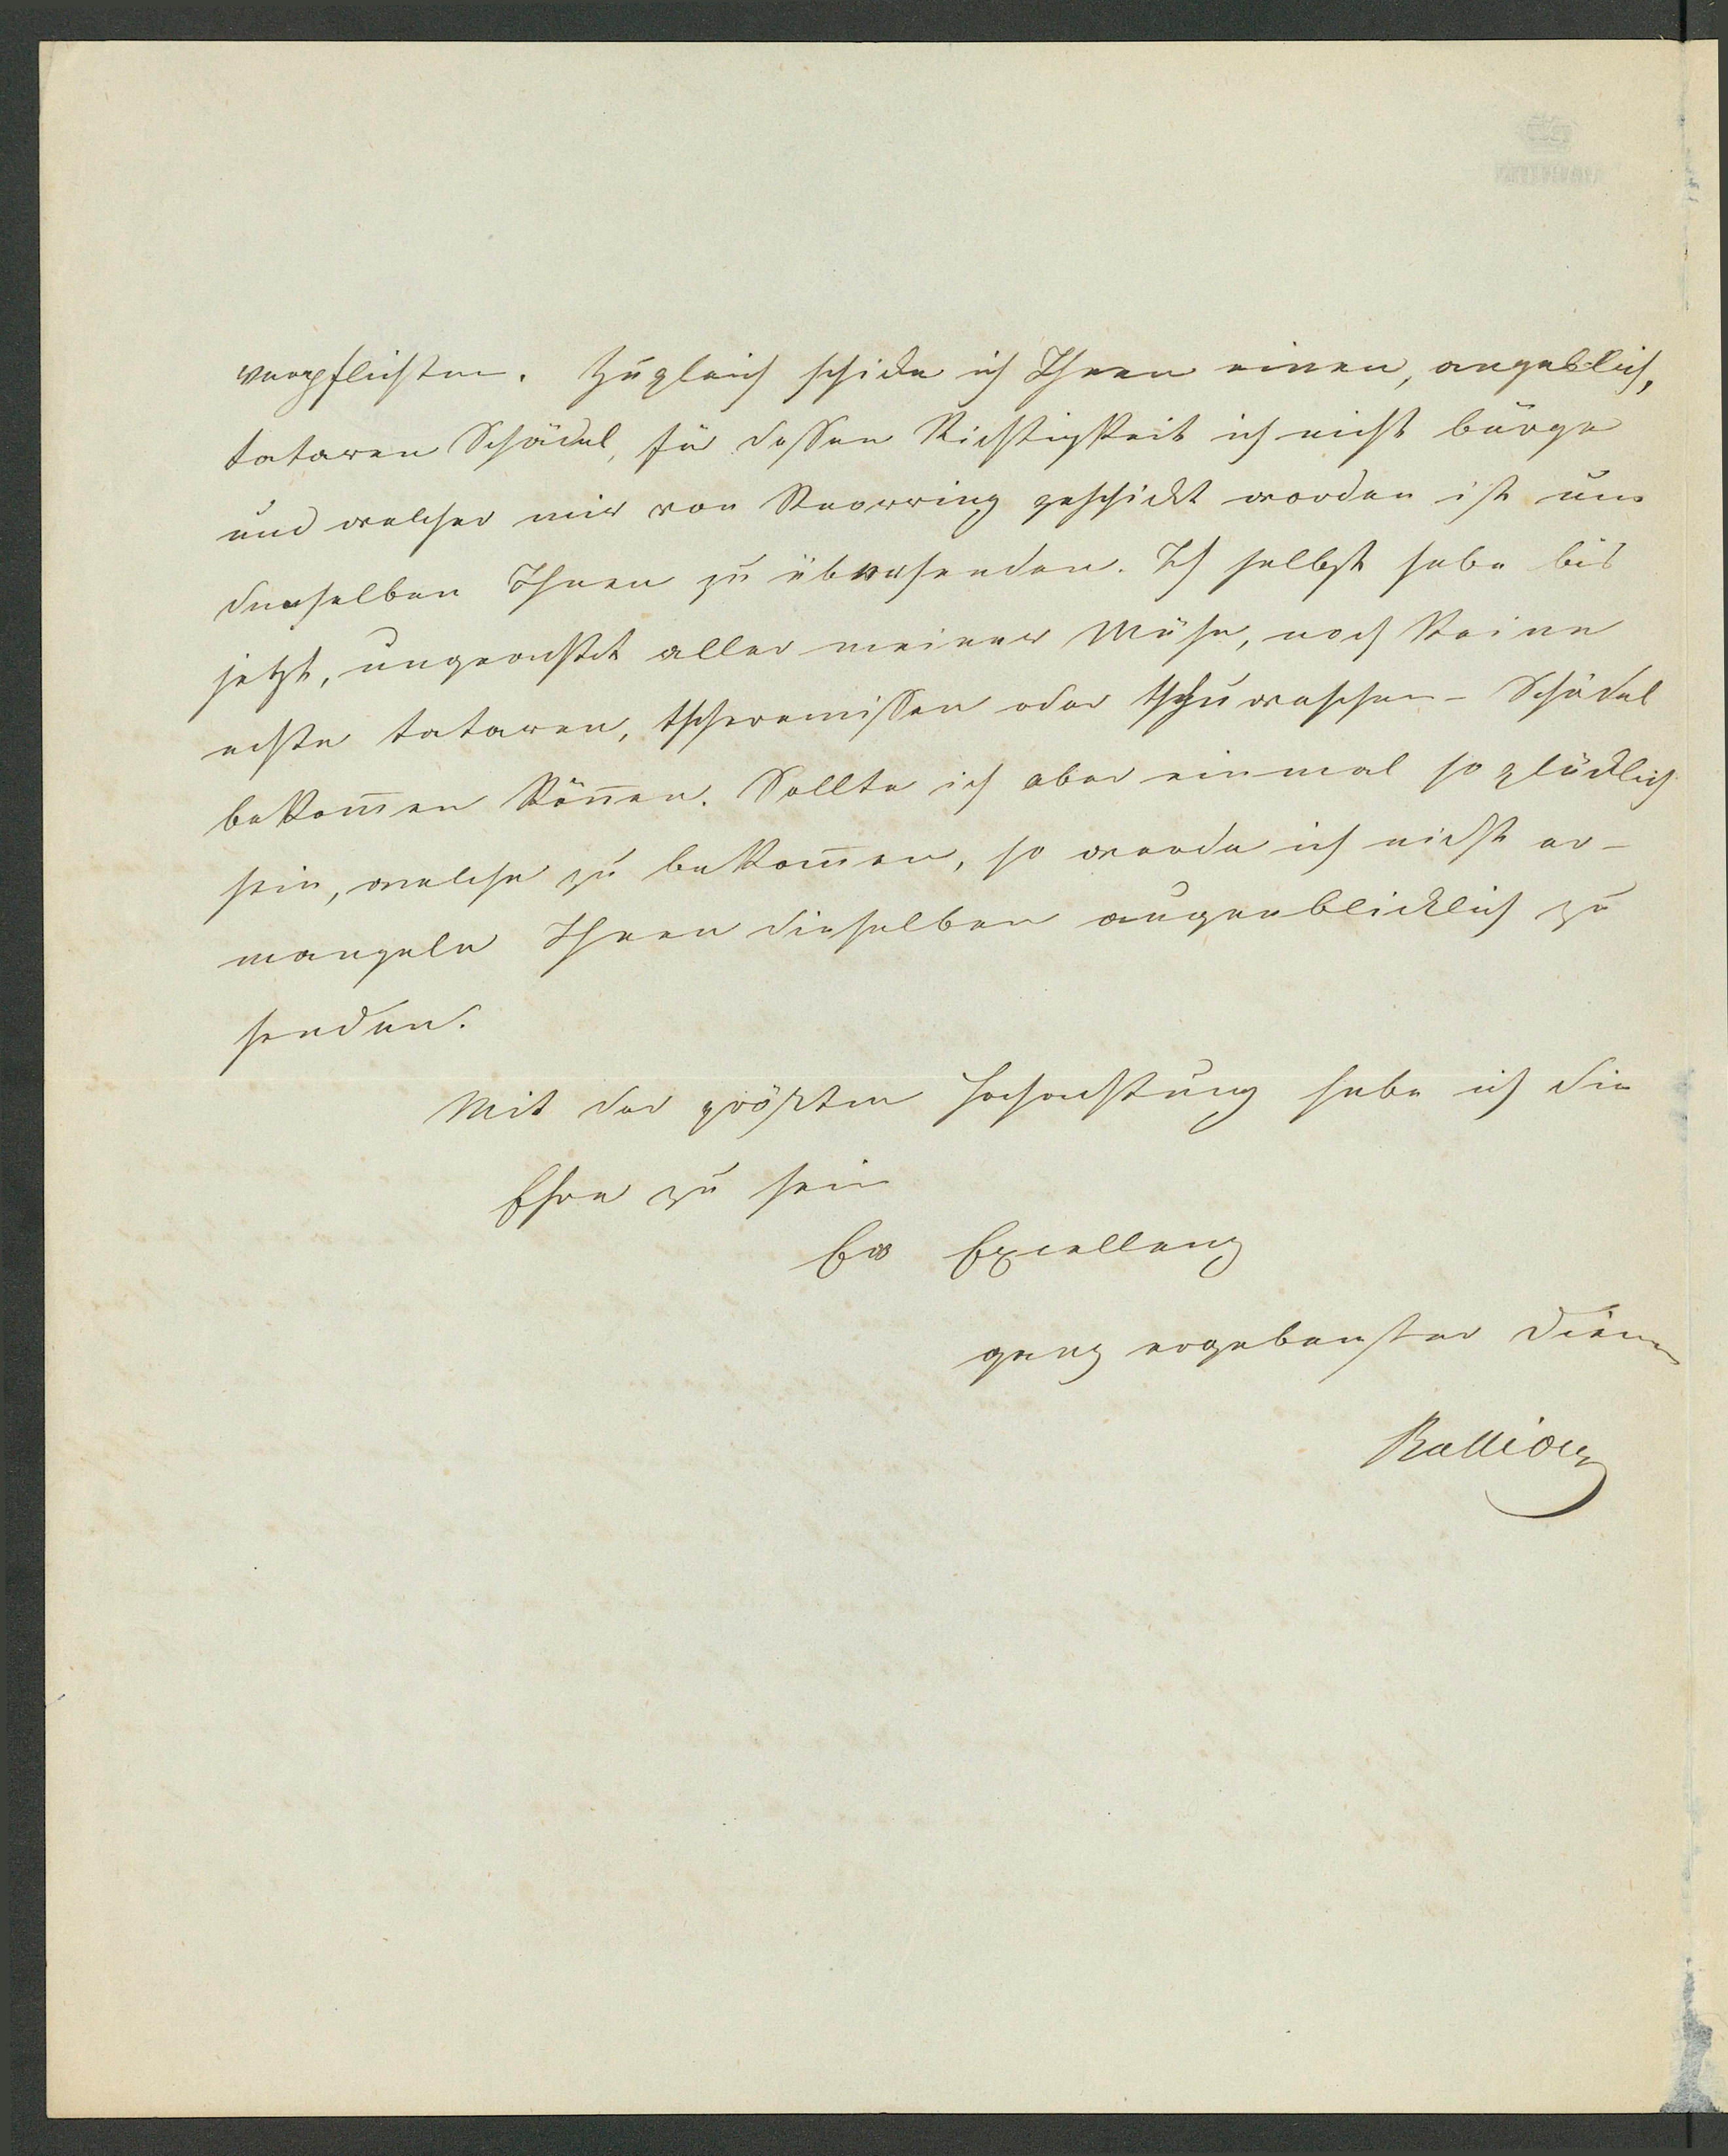 verpflichten. Zugleich schicke ich Ihnen einen, angeblich,
tataren Schädel, für dessen Richtigkeit ich nicht bürge
und welcher mir von Knorring geschickt worden ist um
denselben Ihnen zu übersenden. Ich selbst habe bis
jetzt, ungeachtet aller meiner Mühe, noch keine
echte tataren, tscheremissen oder tschuwaschen-Schädel
bekom̅en kön̅en. Sollte ich aber einmal so glücklich
sein, welche zu bekom̅en, so werde ich nicht er-
mangeln Ihnen dieselben augenblicklich zu
senden.
Mit der größten Hochachtung habe ich die
Ehre zu sein
Ew Excellenz
ganz ergebenster Diener
Ballion